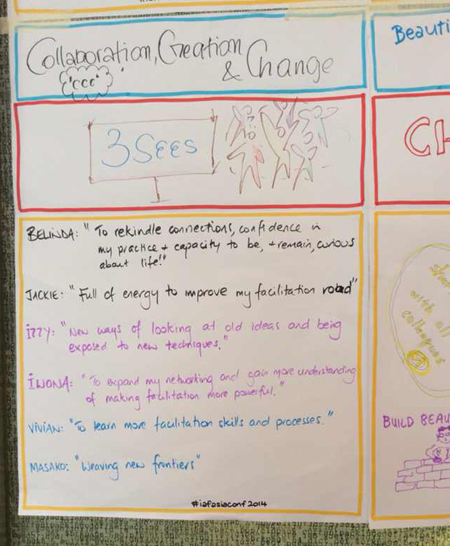 Collaboration, Creation
& Change
"ccc"
3 SEES
BELINDA: "To rekindle connections, confidence in
my practice + capacity to be, + remain, curious
about life!"
JACKIE: "Full of energy to improve my facilitation road"
IZZY: "New ways of looking at old ideas and being
exposed to new techniques."
IWONA: "To expand my networking and gain more understanding
of making facilitation more powerful."
VIVIAN: "To learn more facilitation skills and processes."
MASAKO: "Weaving new frontiers"
#iafasiaconf2014
Beauti
CH
with all
colleagues
BUILD BEAU